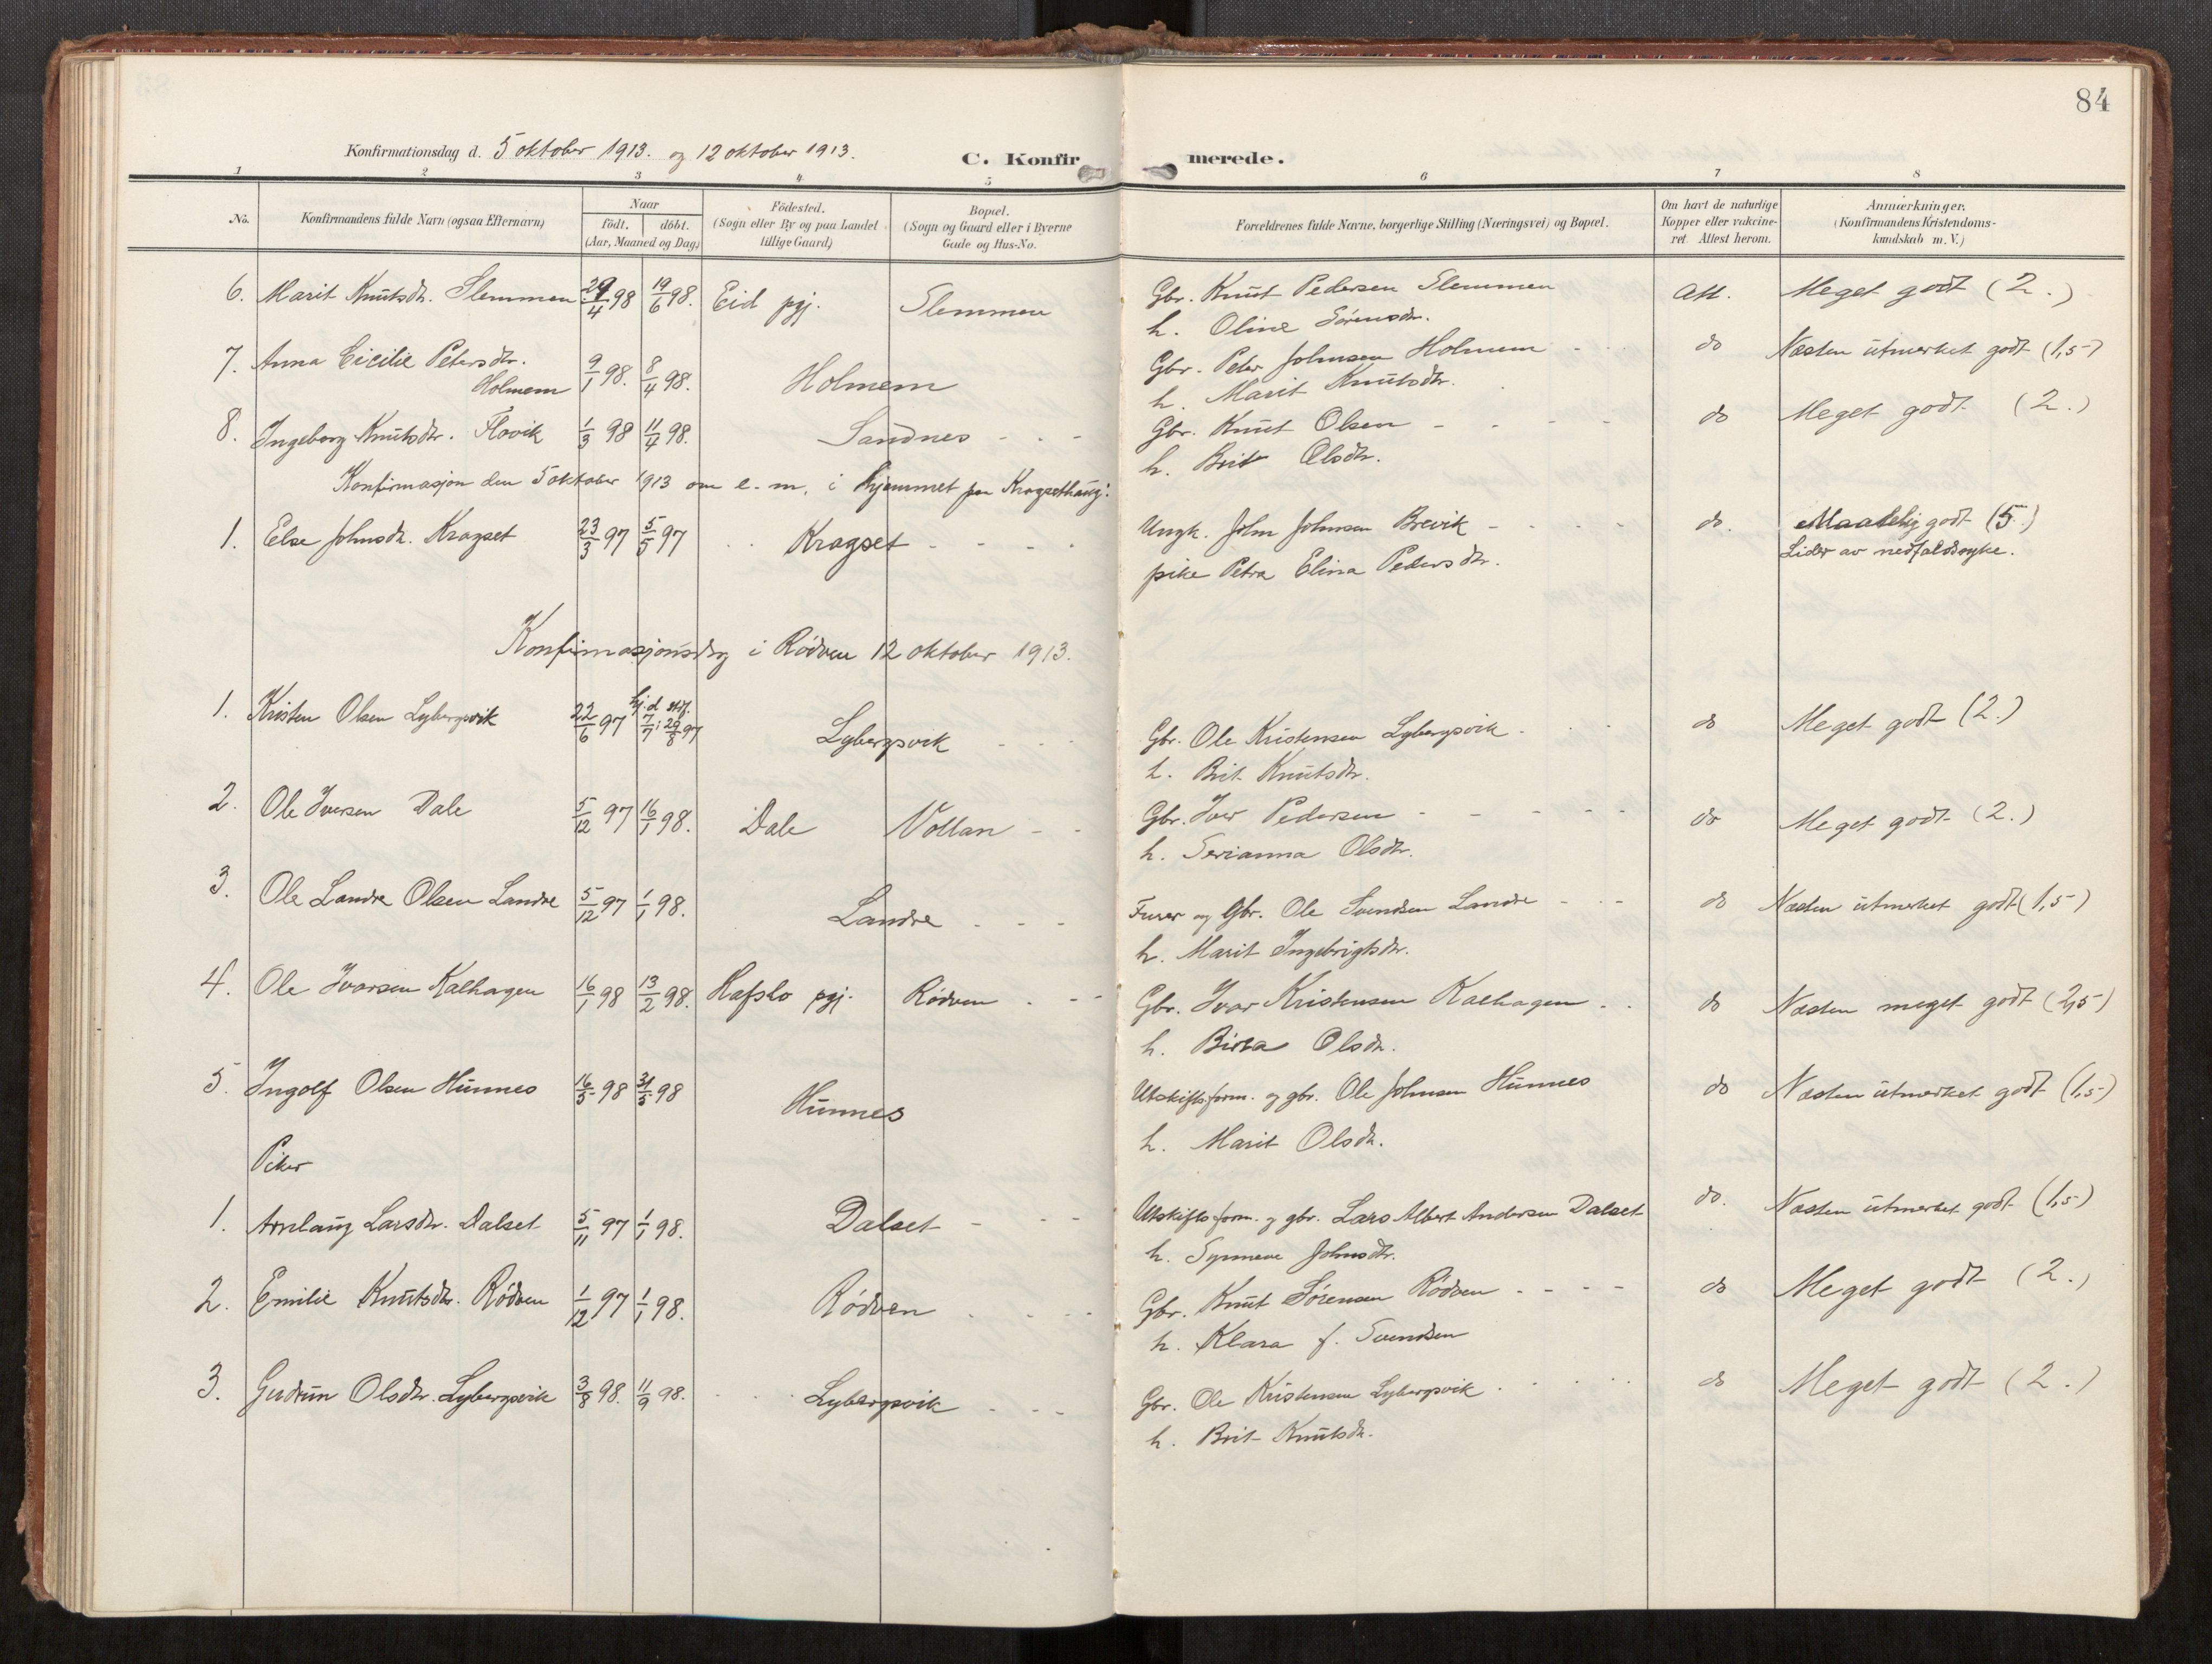 84
Konfirmationsdag d. 5 oktober 1913. og 12 oktober 1913.
C. Konfirmerede.
1 2 3 4 5 6 7 8
No.
Konfirmandens fulde Navn (ogsaa Efternavn)
Naar
födt. döbt.
(Aar, Maaned og Dag)
Födested.
(Sogn eller By og paa Landet
tillige Gaard)
Bopæl.
(Sogn og Gaard eller i Byerne
Gade og Hus-No.
Forældrenes fulde Navne, borgerlige Stilling (Næringsvei) og Bopæl.
Om havt de naturlige
Kopper eller vakcine-
ret. Attest herom.
Anmærkninger.
(Konfirmandens Kristendoms-
kundskab m. V.)
6. Marit Knutsdtr. Slemmen 29/4 98 19/6 98. Eid pgj. Slemmen Gbr. Knut Pedersen Slemmen Att. Meget godt (2.)
h. Oline Sörensdtr.
7. Anna Cicilie Petersdtr. Holmem 9/1 98. 8/4 98. Holmem Gbr. Peter Johnsen Holmem do Næsten utmerket godt (1,5)
h. Marit Knutsdtr.
8. Ingeborg Knutsdtr. Flovik 1/3 98 11/4 98. Sandnes - - - Gbr. Knut Olsen - - - - do Meget godt (2.)
h. Brit Olsdtr.
Konfirmasjon den 5 oktober 1913 om e. m. i hjemmet paa Kragsethaug:
1. Else Johnsdtr. Kragset 23/3 97 5/5 97 Kragset - - - - Ungk. John Johnsen Brevik - - - - do. Maadelig godt (5.)
pike Petra Elina Pedersdtr. Lider av nedfaldssyke.
Konfirmasjonsdag i Rödven 12 oktober 1913.
1. Kristen Olsen Lybergsvik 22/6 97 hj. d. stf. 7/7; 29/8 97 Lybergsvik - - - Gbr. Ole Kristensen Lybergsvik - do Meget godt (2.)
h. Brit Knutsdtr.
2. Ole Iversen Dale 5/12 97 16/1 98. Dale Vollan - - Gbr. Iver Pedersen - - - - - do Meget godt (2.)
h. Serianna Olsdtr.
3. Ole Landre Olsen Landre 5/12 97 1/1 98. Landre - - - Furer og Gbr. Ole Svendsen Landre - - - do Næsten utmerket godt (1,5)
h. Marit Ingebrigtsdtr.
4. Ole Ivarsen Kalhagen 16/1 98 13/2 98. Hafslo pgj. Rödven - - - Gbr. Ivar Kristensen Kalhagen - - do Næsten meget godt (2,5)
h. Birta Olsdtr.
5. Ingolf Olsen Hunnes 16/5 98 31/5 98 Hunnes Utskiftsform. og gbr. Ole Johnsen Hunnes do Næsten utmerket godt (1,5)
h. Marit Olsdtr.
Piker
1. Arnlaug Larsdtr. Dalset 5/11 97 1/1 98. Dalset - - - Utskiftsform. og gbr. Lars Albert Andersen Dalset do. Næsten utmerket godt (1,5)
h. Synneve Johnsdtr.
2. Emilie Knutsdtr. Rödven 1/12 97 1/1 98. Rödven - - - Gbr. Knut Sörensen Rödven - - - - do Meget godt (2.)
h. Klara f. Svendsen
3. Gudrun Olsdtr. Lybergsvik 3/8 98. 11/9 98. Lybergsvik - - - Gbr. Ole Kristensen Lybergsvik - - - - - do Meget godt (2.)
h. Brit Knutsdtr.